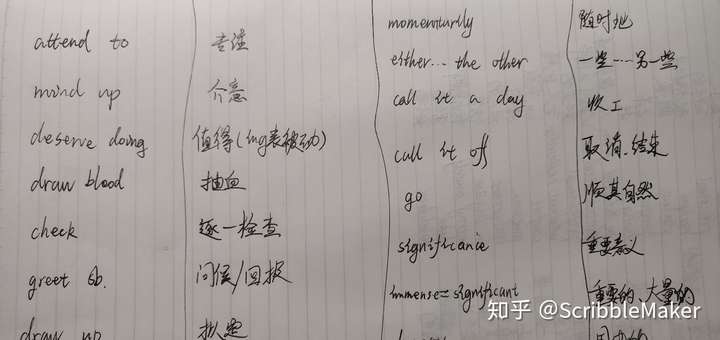 attend to 专注
mind up 介意
deserve doing 值得(ing表被动)
draw blood 抽血
check 逐一检查
greet sb. 问候/回报
draw up 拟定
momentarily 随时地
either... the other 一些…另一些
call it a day 收工
call it off 取消.结束
go 顺其自然
significance 重要意义
immense=significant 重要的、大量的
知乎 @ScribbleMaker